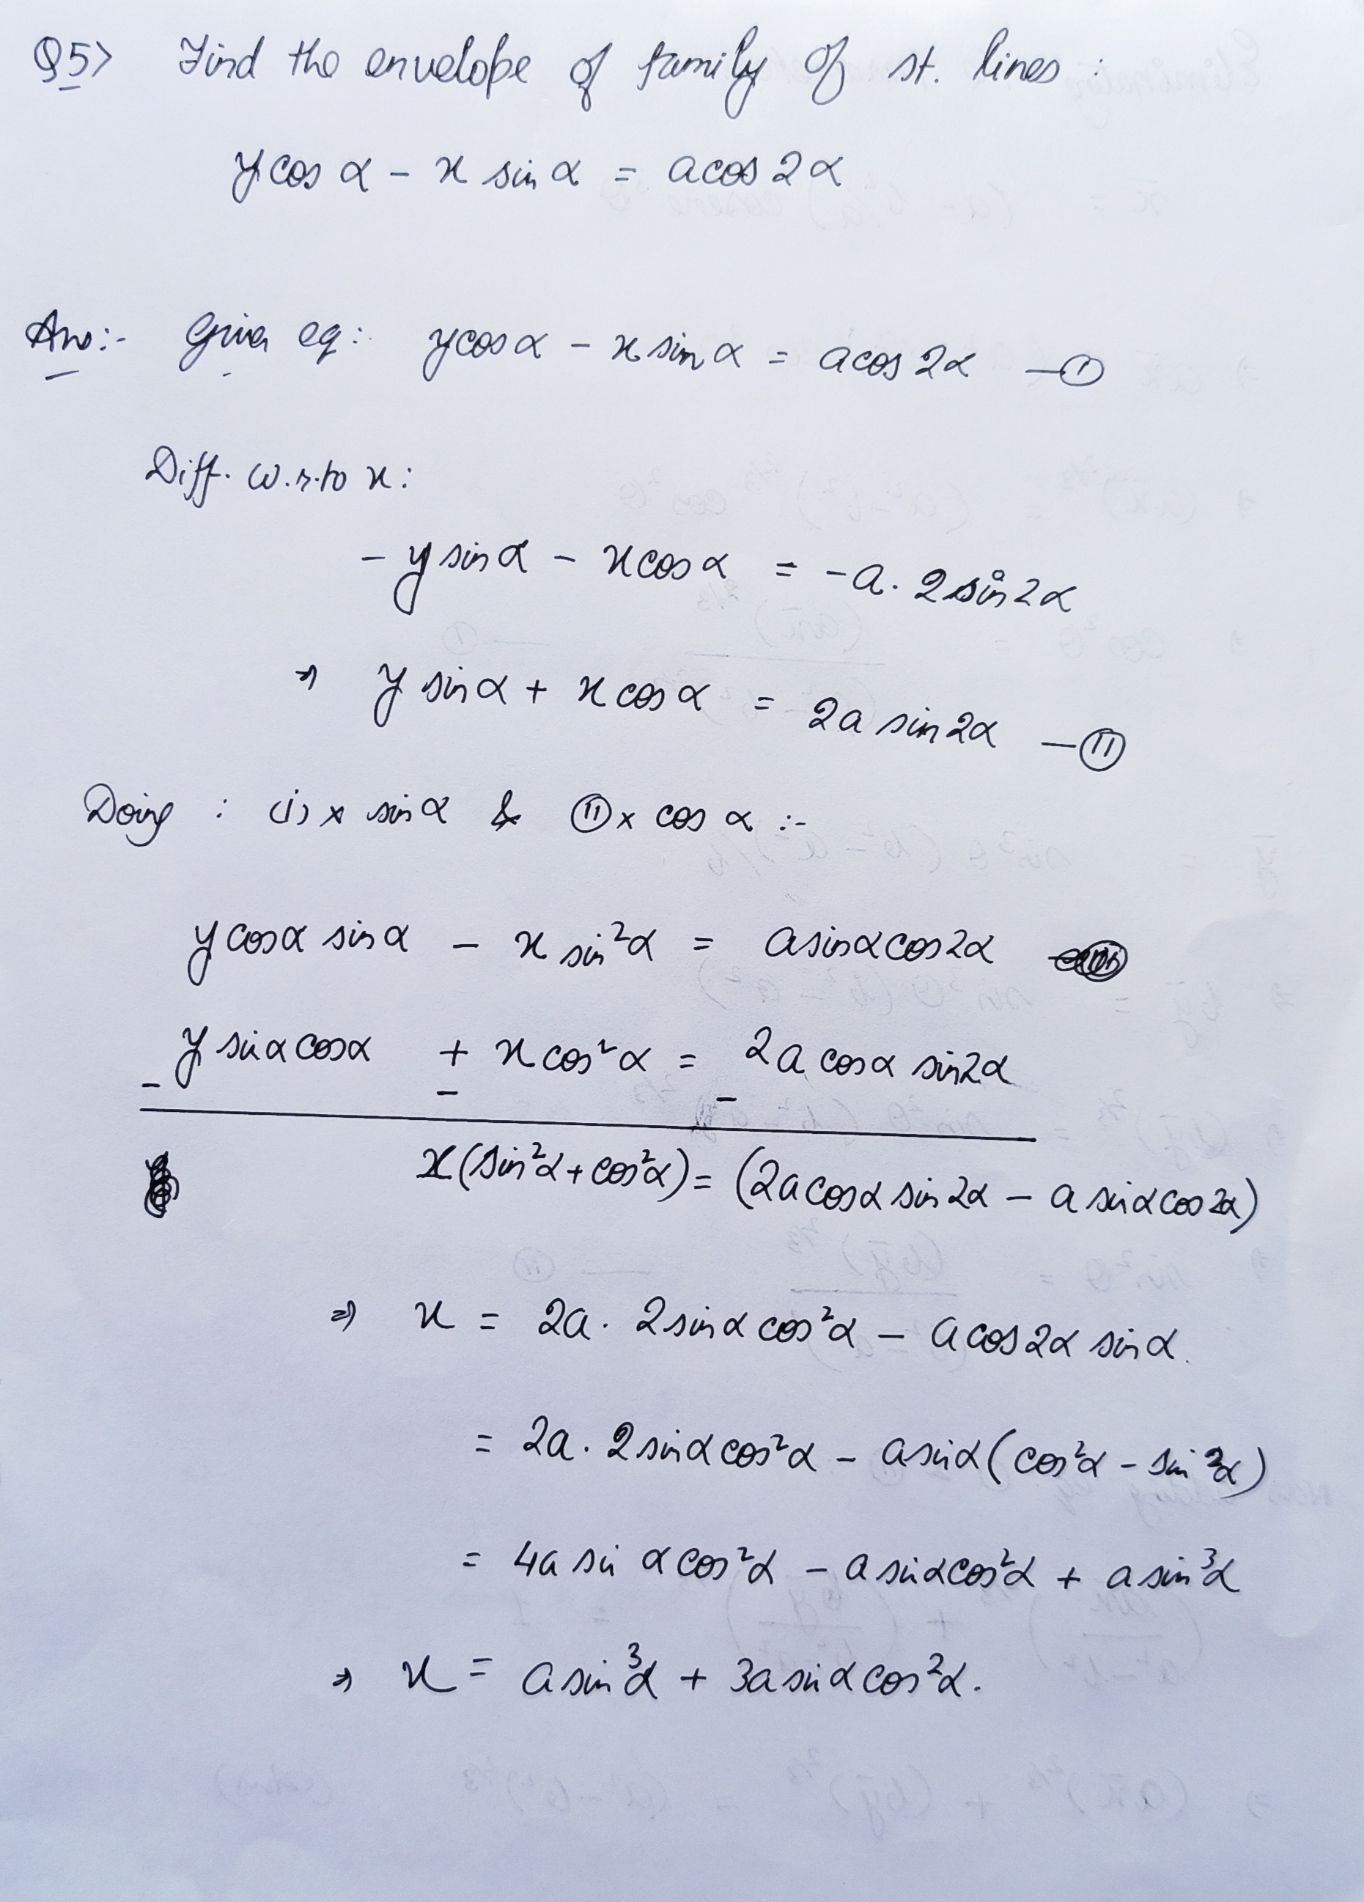 Q5> Find the envelope of family of st. lines :
y cos α - x sin α = a cos 2α
Ans:- Given eq: y cos α - x sin α = a cos 2α —①
Diff. w.r.to x:
- y sin α - x cos α = -a. 2 sin 2α
⇒ y sin α + x cos α = 2a sin 2α —⑪
Doing : (i) x sin α & ⑪ x cos α :-
y cos α sin α - x sin²α = a sin α cos 2α
y sin α cos α + x cos²α = 2a cos α sin 2α
- - -
x(sin²α + cos²α) = (2a cos α sin 2α - a sin α cos 2α)
⇒ x = 2a. 2 sin α cos²α - a cos 2α sin α.
= 2a. 2 sin α cos²α - a sin α (cos²α - sin²α)
= 4a sin α cos²α - a sin α cos²α + a sin³α
⇒ x = a sin³α + 3a sin α cos²α.